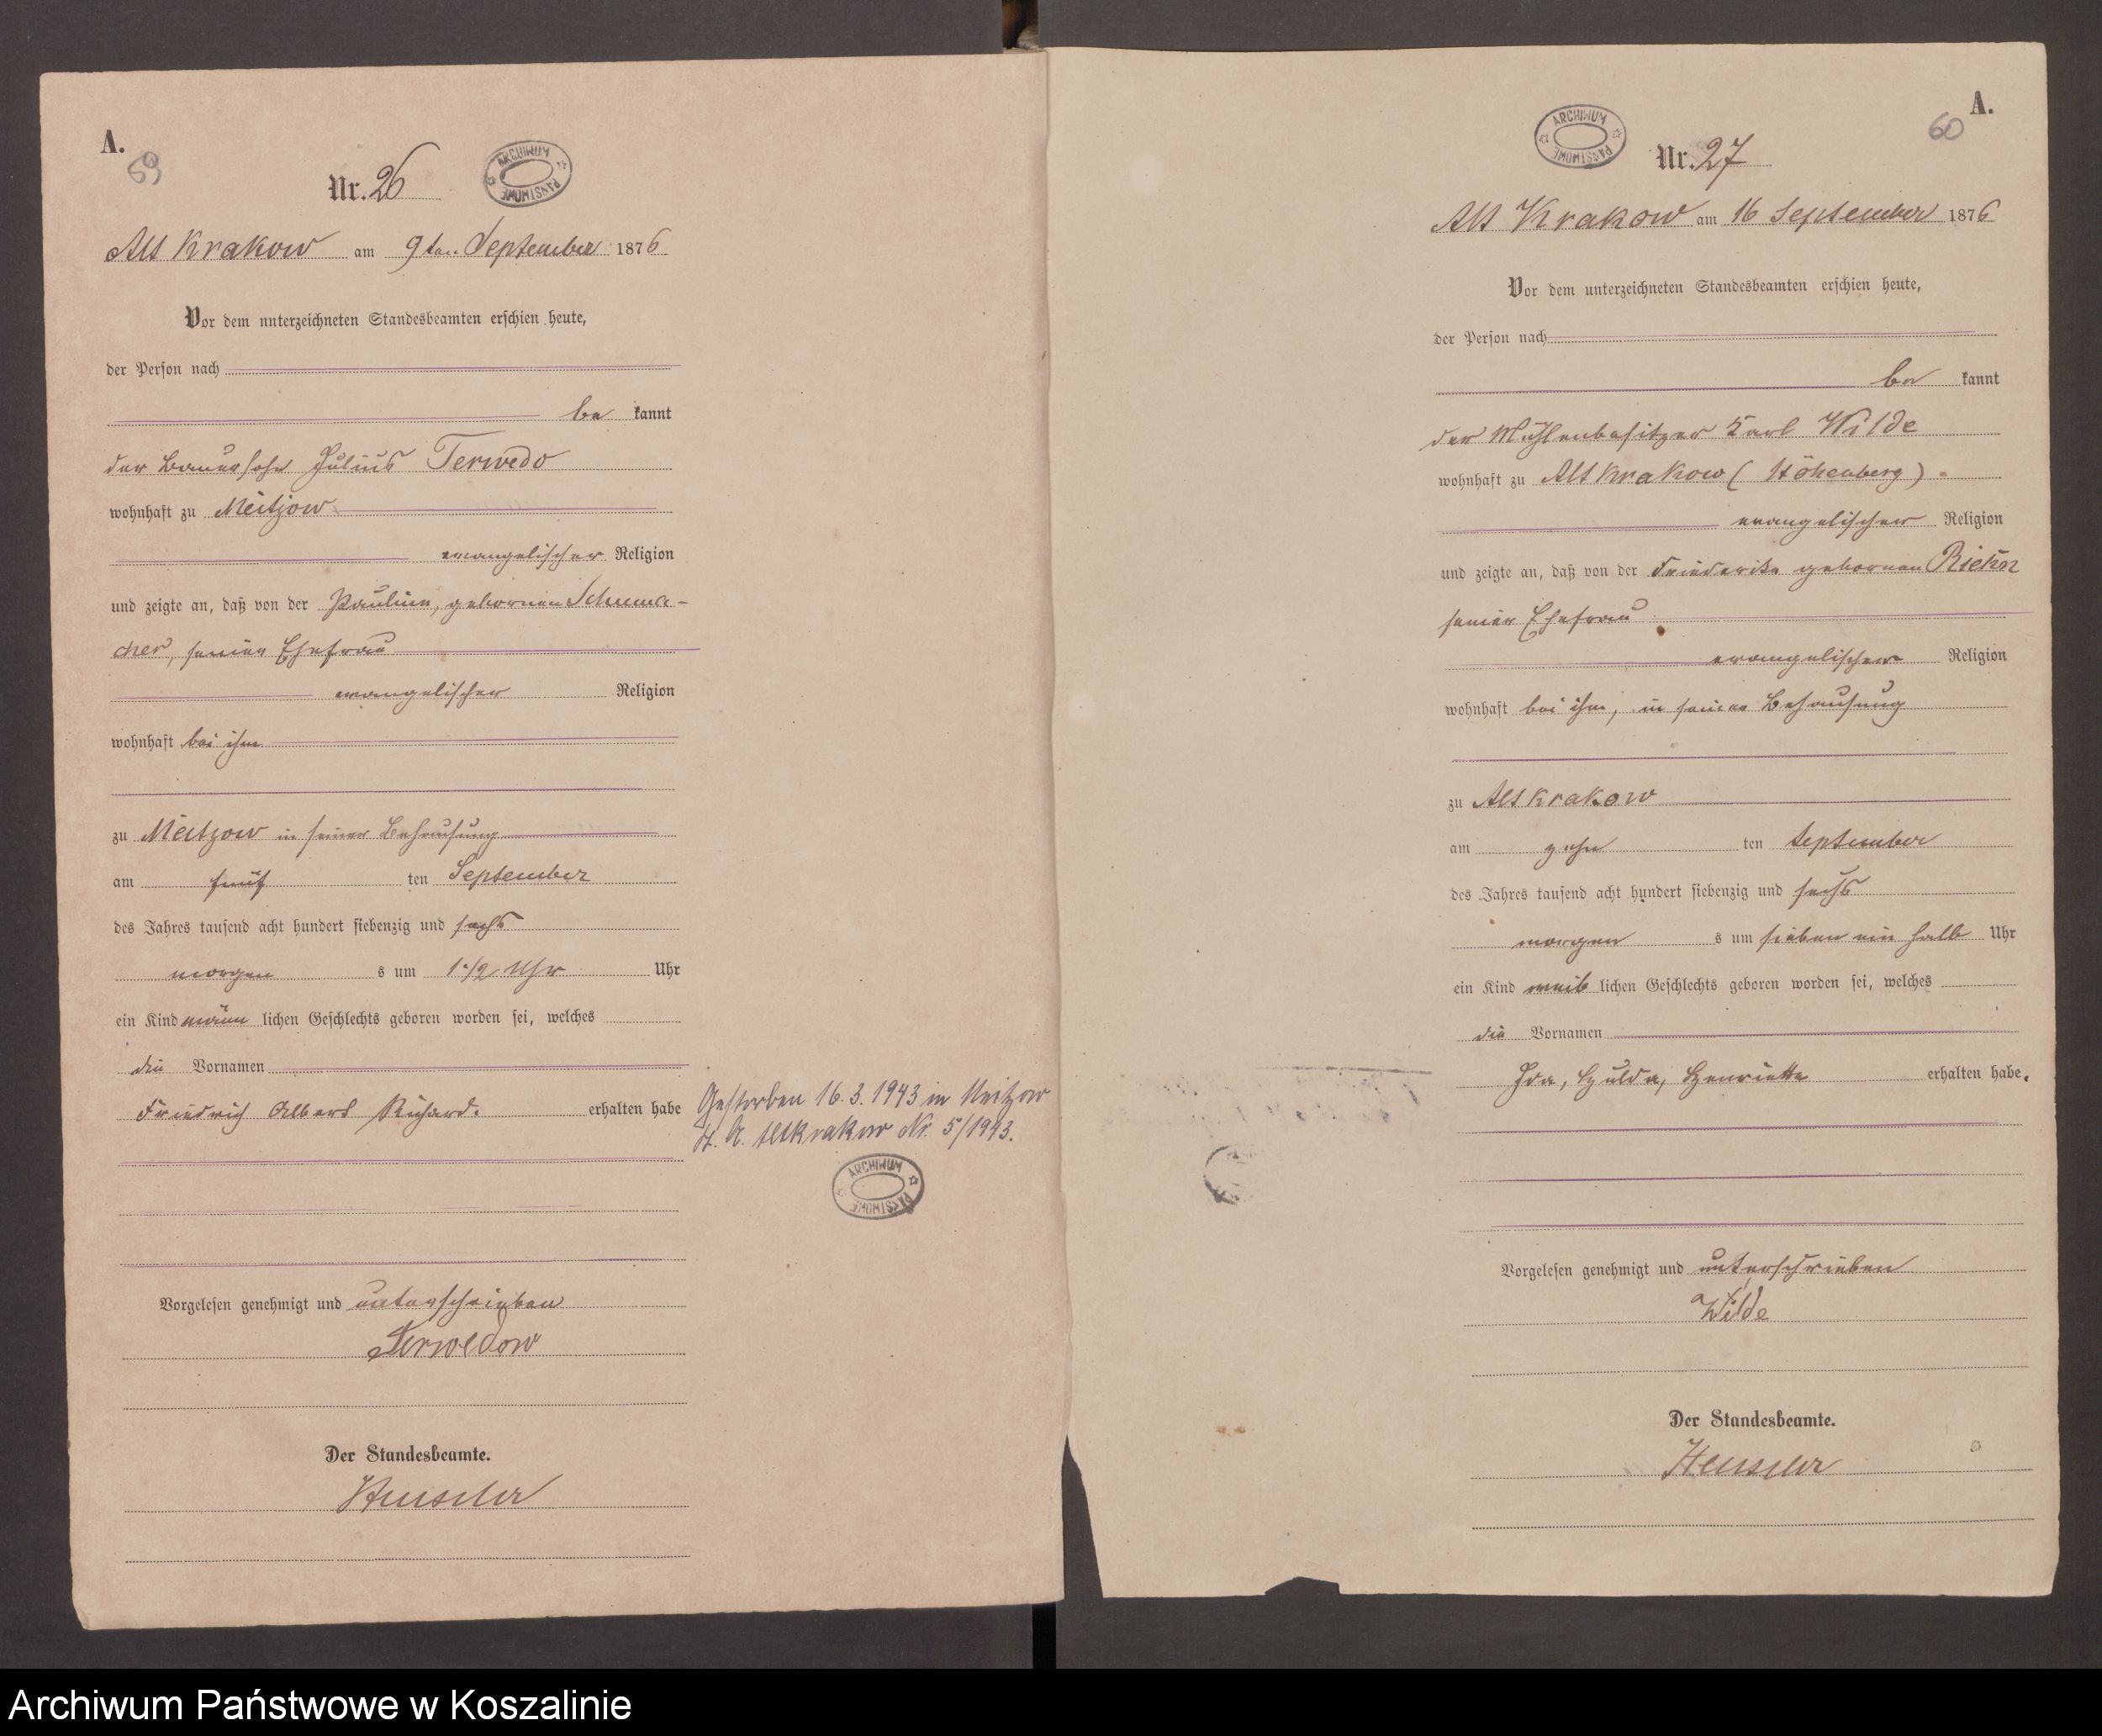 A.
59
Nr. 26
ARCHIWUM PAŃSTWOWE
Alt Krakow am 9ten September 1876
Vor dem unterzeichneten Standesbeamten erschien heute,
der Person nach
be kannt
der Bauersohn Julius Terwedo
wohnhaft zu Meitzow
evangelischer Religion
und zeigte an, daß von der Pauline, gebornen Schuma-
cher, seiner Ehefrau
evangelischer Religion
wohnhaft bei ihm
zu Meitzow in seiner Behausung
am fünf ten September
des Jahres tausend acht hundert siebenzig und sechs
morgen s um 1 1/2 Uhr Uhr
ein Kind männ lichen Geschlechts geboren worden sei, welches
die Vornamen
Friedrich Albert Richard. erhalten habe
Gestorben 16.3.1943 in Meitzow
St. A. Altkrakow Nr. 5/1943.
ARCHIWUM PAŃSTWOWE
Vorgelesen genehmigt und unterschrieben
Terwedow
Der Standesbeamte.
A.
60
ARCHIWUM PAŃSTWOWE
Nr. 27
Alt Krakow am 16 September 1876
Vor dem unterzeichneten Standesbeamten erschien heute,
der Person nach
be kannt
der Mühlenbesitzer Karl Wilde
wohnhaft zu Alt Krakow (Höhenberg)
evangelischer Religion
und zeigte an, daß von der Friederike gebornen
seiner Ehefrau
evangelischer Religion
wohnhaft bei ihm, in seiner Behausung
zu Alt Krakow
am zehn ten September
des Jahres tausend acht hundert siebenzig und sechs
morgen s um sieben ein halb Uhr
ein Kind weib lichen Geschlechts geboren worden sei, welches
die Vornamen
Ida, Hulda, Henriette erhalten habe.
Vorgelesen genehmigt und unterschrieben
Wilde
Der Standesbeamte.
Archiwum Państwowe w Koszalinie